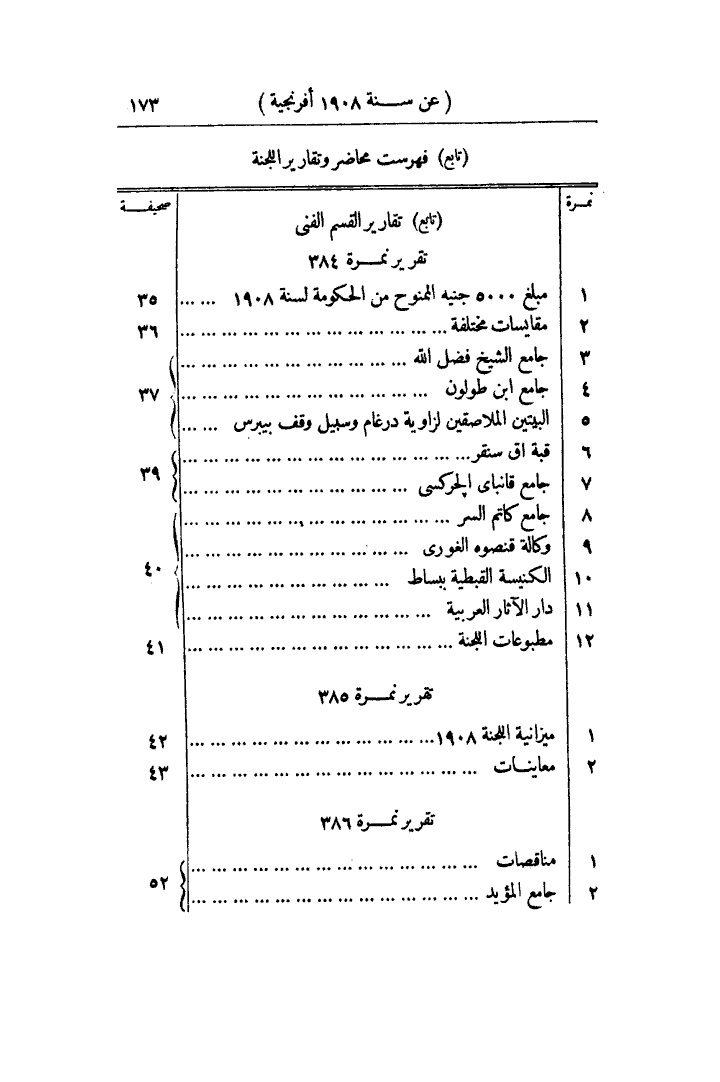 (عن سنة ١٩٠٨ أفرنجية) ١٧٣
(تابع) فهرست محاضر وتقارير اللجنة
نمرة صحيفة
(تابع) تقارير القسم الفنى
تقرير نمرة ٣٨٤
١ مبلغ ٥٠٠٠ جنيه الممنوح من الحكومة لسنة ١٩٠٨ ... ... ٣٥
٢ مقايسات مختلفة ... ... ... ... ... ... ... ... ... ... ... ... ... ٣٦
٣ جامع الشيخ فضل الله ... ... ... ... ... ... ... ... ... ... ...
٤ جامع ابن طولون ... ... ... ... ... ... ... ... ... ... ... ... ٣٧
٥ البيتين الملاصقين لزاوية درغام وسبيل وقف بيبرس ... ...
٦ قبة اق سنقر ... ... ... ... ... ... ... ... ... ... ... ... ... ...
٧ جامع قانباى الجركسى ... ... ... ... ... ... ... ... ... ... ... ٣٩
٨ جامع كاتم السر ... ... ... ... ... ... ... ... ... ... ... ... ...
٩ وكالة قنصوه الغورى ... ... ... ... ... ... ... ... ... ... ...
١٠ الكنيسة القبطية ببساط ... ... ... ... ... ... ... ... ... ... ٤٠
١١ دار الآثار العربية ... ... ... ... ... ... ... ... ... ... ... ...
١٢ مطبوعات اللجنة ... ... ... ... ... ... ... ... ... ... ... ... ... ٤١
تقرير نمرة ٣٨٥
١ ميزانية اللجنة ١٩٠٨ ... ... ... ... ... ... ... ... ... ... ... ... ٤٢
٢ معاينات ... ... ... ... ... ... ... ... ... ... ... ... ... ... ٤٣
تقرير نمرة ٣٨٦
١ مناقصات ... ... ... ... ... ... ... ... ... ... ... ... ... ...
٢ جامع المؤيد ... ... ... ... ... ... ... ... ... ... ... ... ... ... ٥٢